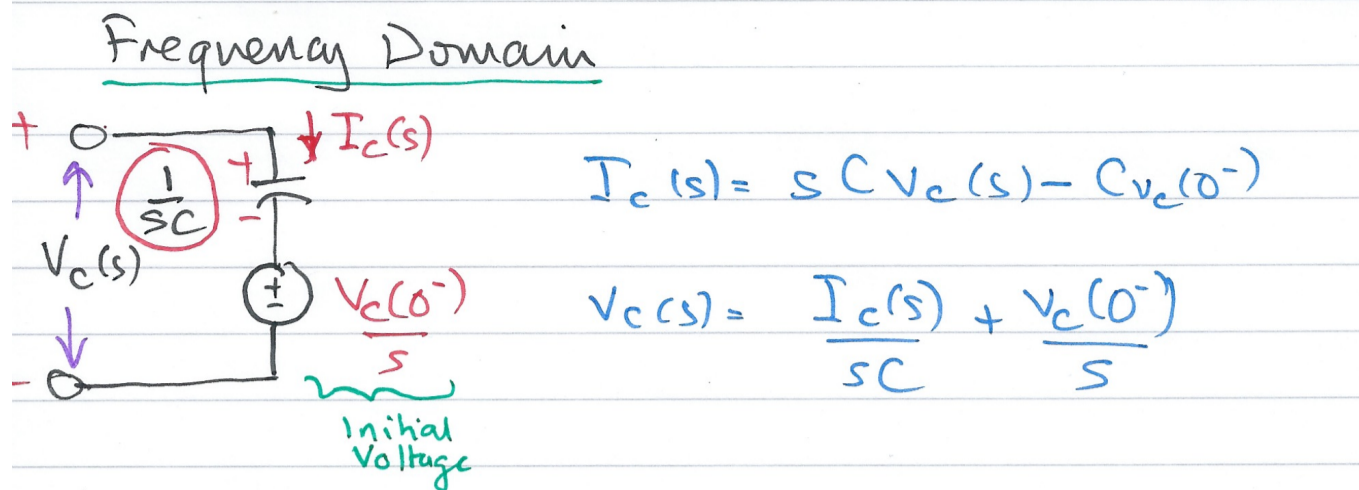 Frequency Domain
+ ↓ I_c(s)
+
1/sC
-
V_c(s)
± V_c(0⁻)/s
-
Initial
Voltage
I_c(s) = s C V_c(s) - C v_c(0⁻)
V_c(s) = I_c(s)/sC + v_c(0⁻)/s